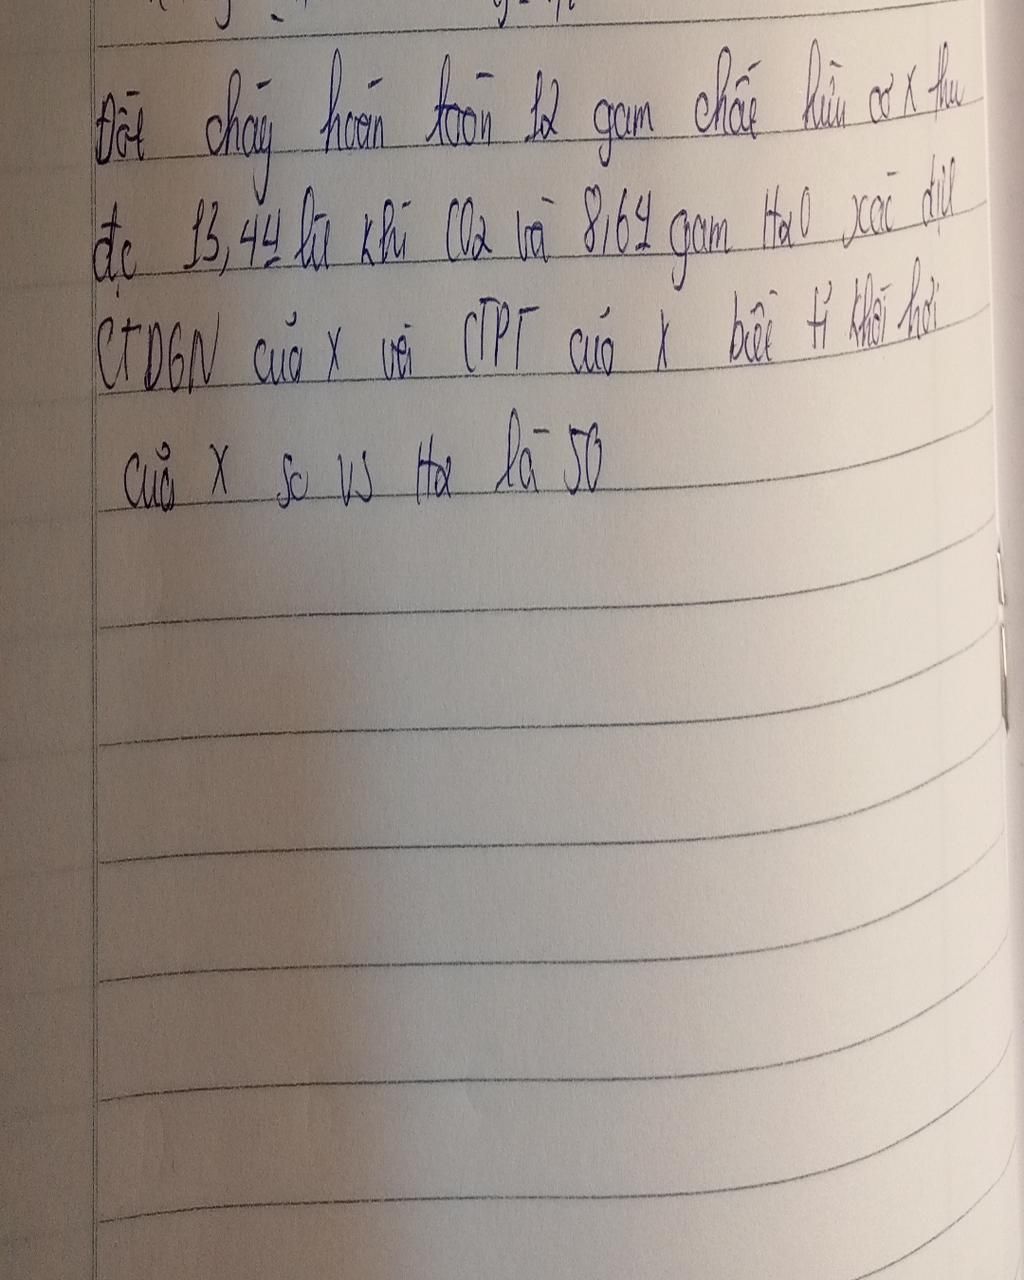 Đốt cháy hoàn toàn 12 gam chất hữu cơ X thu
đc 13,44 lít khí CO2 và 8,64 gam H2O xác định
CTDGN của X với CTPT của X biết tỉ khối hơi
của X so vs H2 là 50